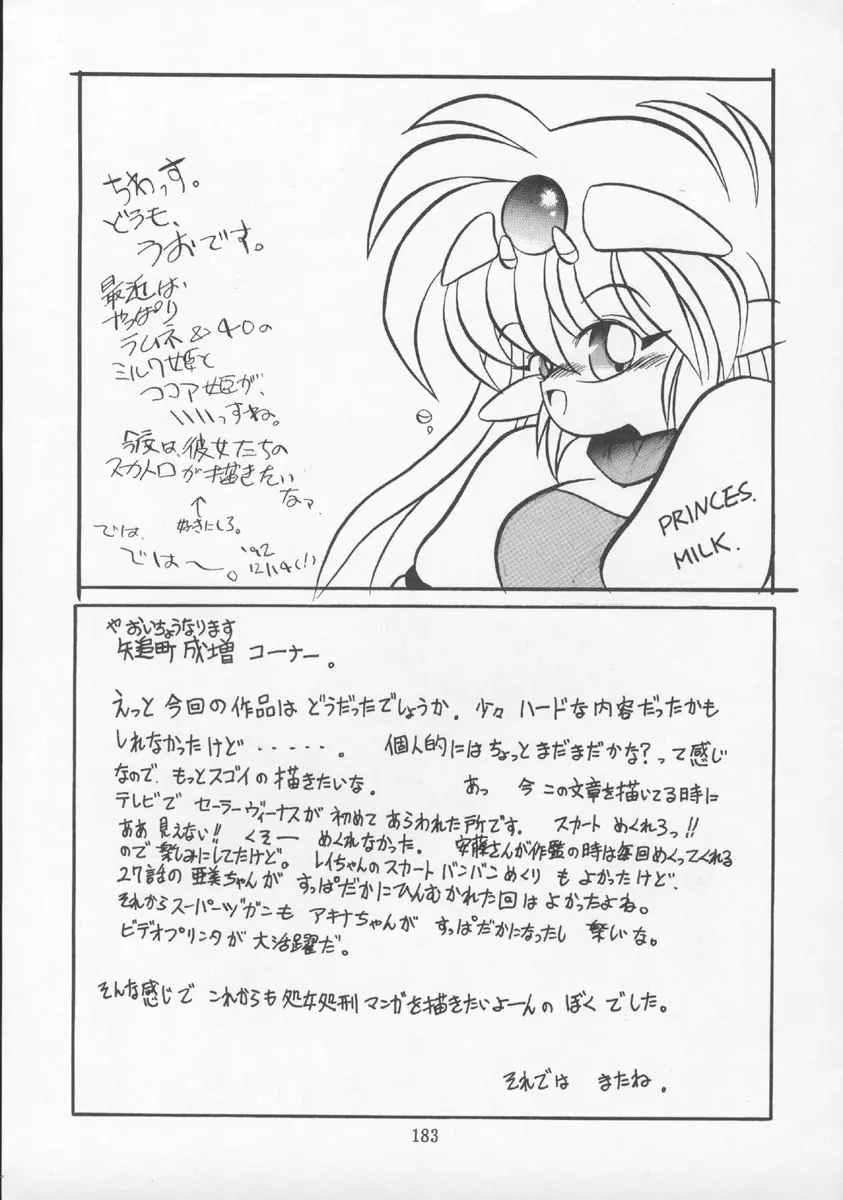 ちわっす。
どうも、
うおです。
最近は、
やっぱり
ラムネ&40の
ミルク姫と
ココア姫が、
いいっすね。
今度は、彼女たちの
スカトロが描きたい
なァ.
↑
好きにしろ。
では、
では〜。
'92
12/14(!)
PRINCES.
MILK.
やおいちょうなります
矢追町 成増 コーナー。
えっと 今回の作品は どうだったでしょうか. 少々 ハードな内容だったかも
しれなかったけど ‥‥‥。 個人的にはちょっとまだまだかな?って感じ
なので、もっとスゴイの描きたいな。 あっ 今 この文章を描いてる時に
テレビで セーラーヴィーナスが 初めて あらわれた所です. スカート めくれろっ!!
ああ 見えない!! くそー めくれなかった. 安藤さんが作監の時は毎回めくってくれる
ので楽しみにしてたけど。 レイちゃんのスカート バンバンめくり も よかったけど、
27話の 亜美ちゃんが すっぱだかにひんむかれた回は よかったよね。
それからスーパーヅガンも アキナちゃんが すっぱだかになったし 楽しいな。
ビデオプリンタが 大活躍だ。
そんな感じで これからも 処女処刑 マンガを描きたいよーんの ぼく でした。
それでは またね.
183